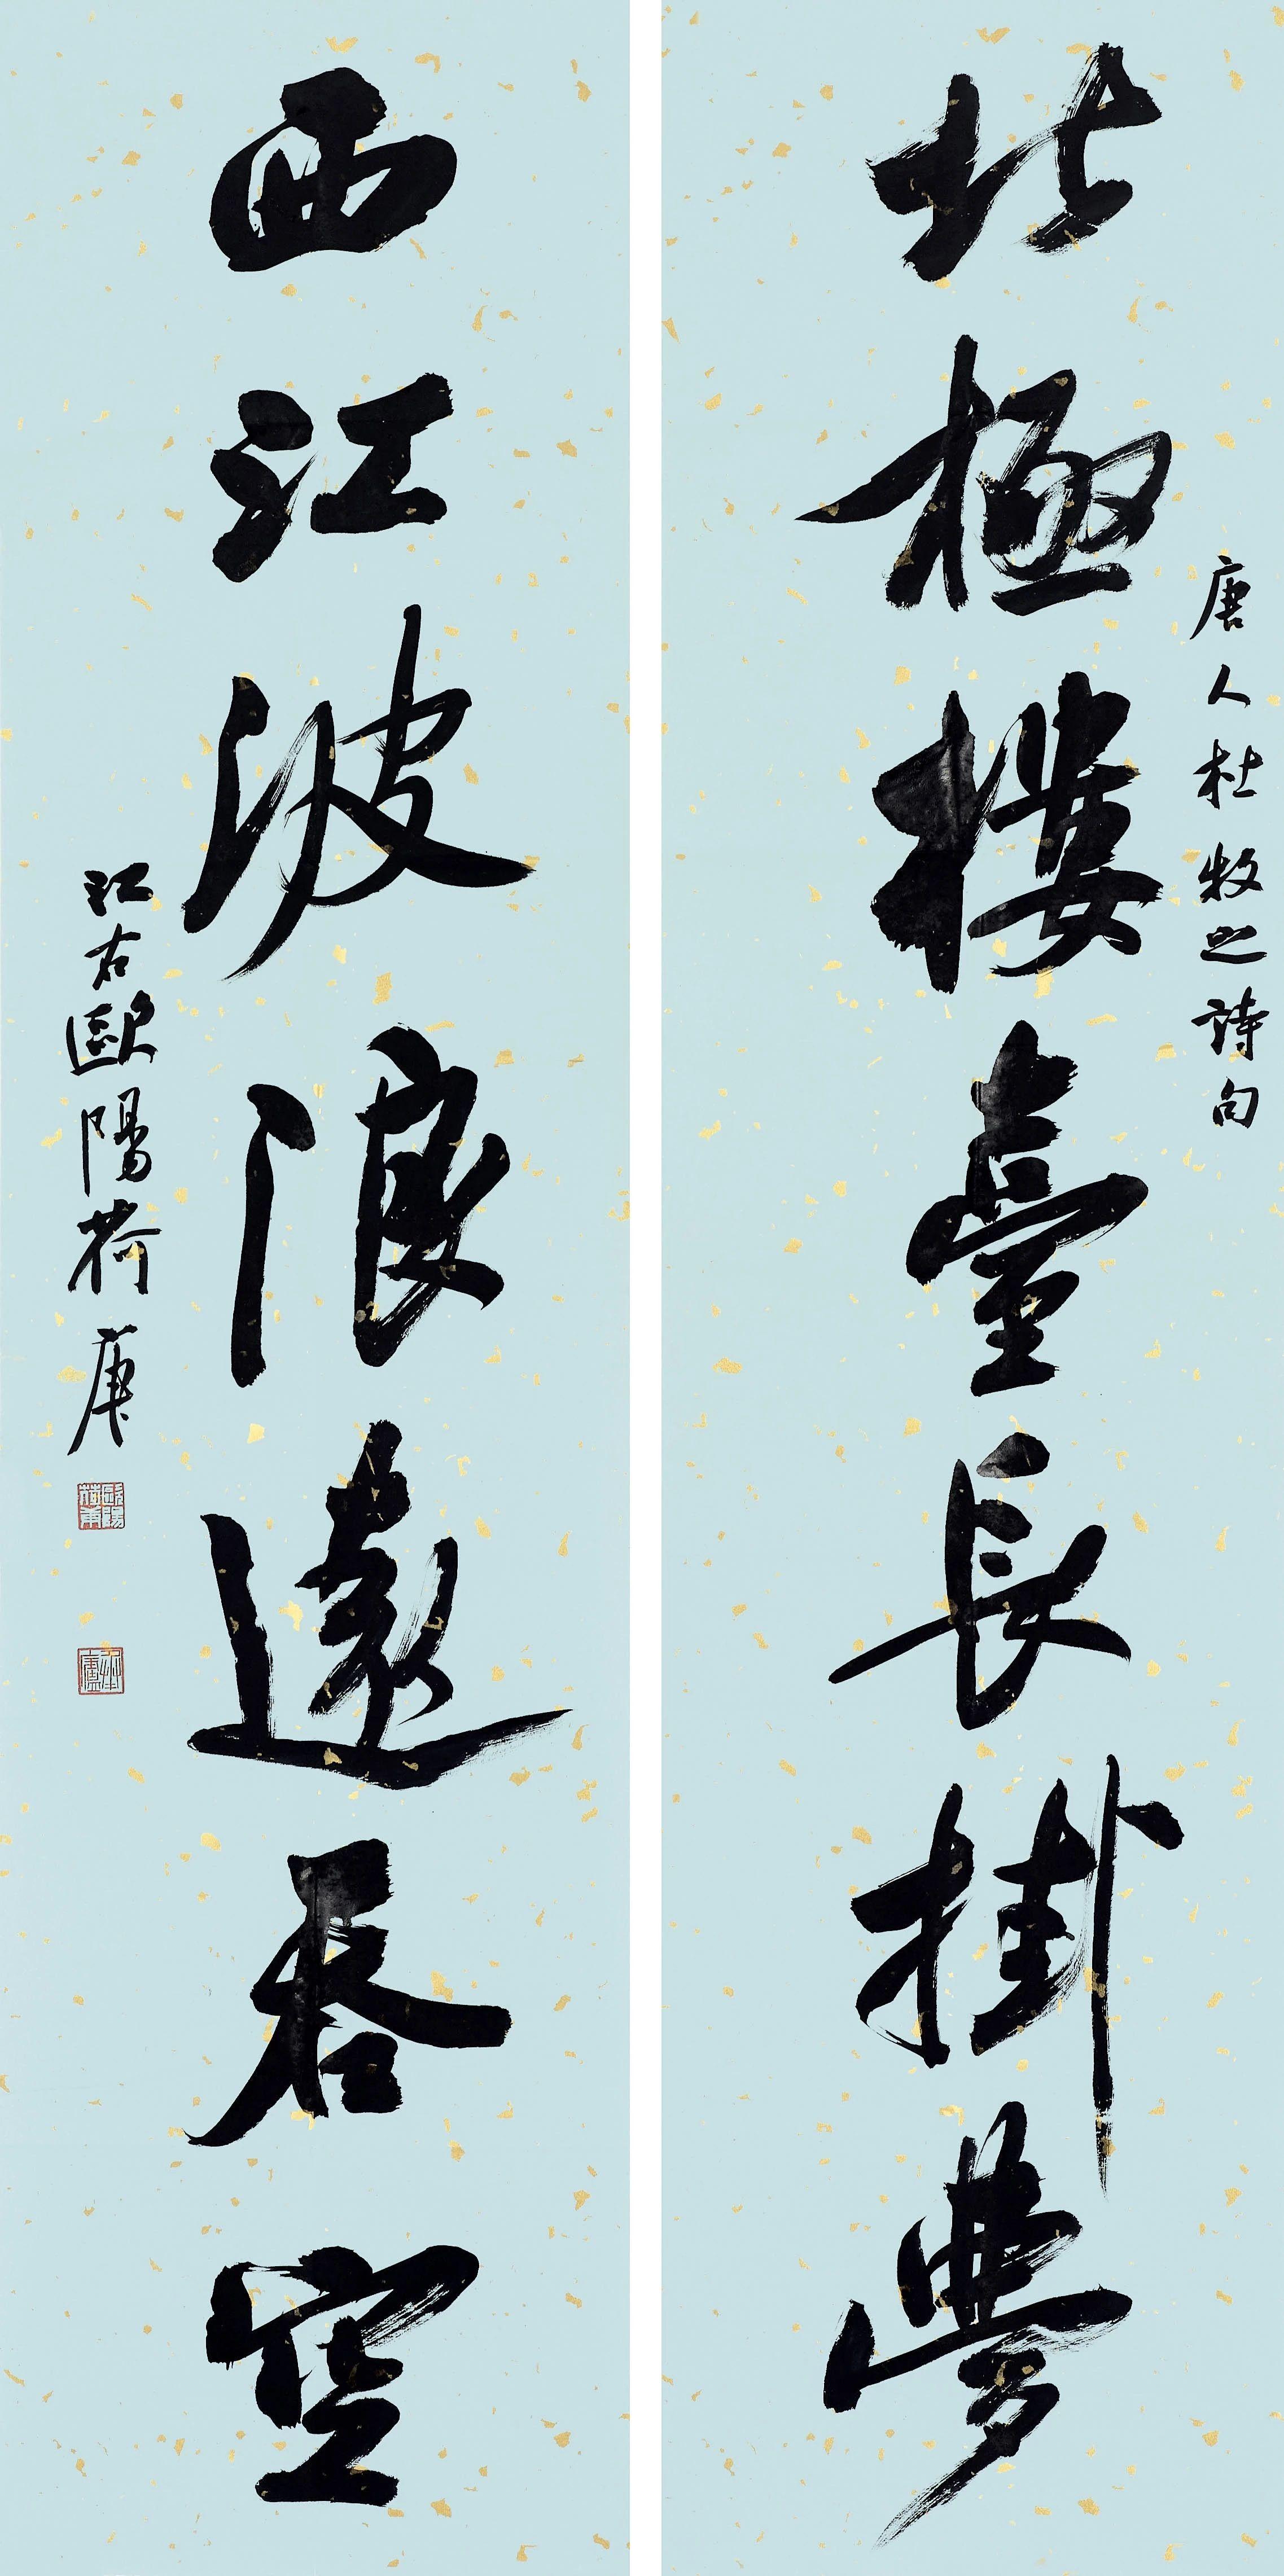 唐人杜牧之詩句
北極樓臺長掛夢
西江波浪遠吞空
江右歐陽荷庚
歐陽荷庚